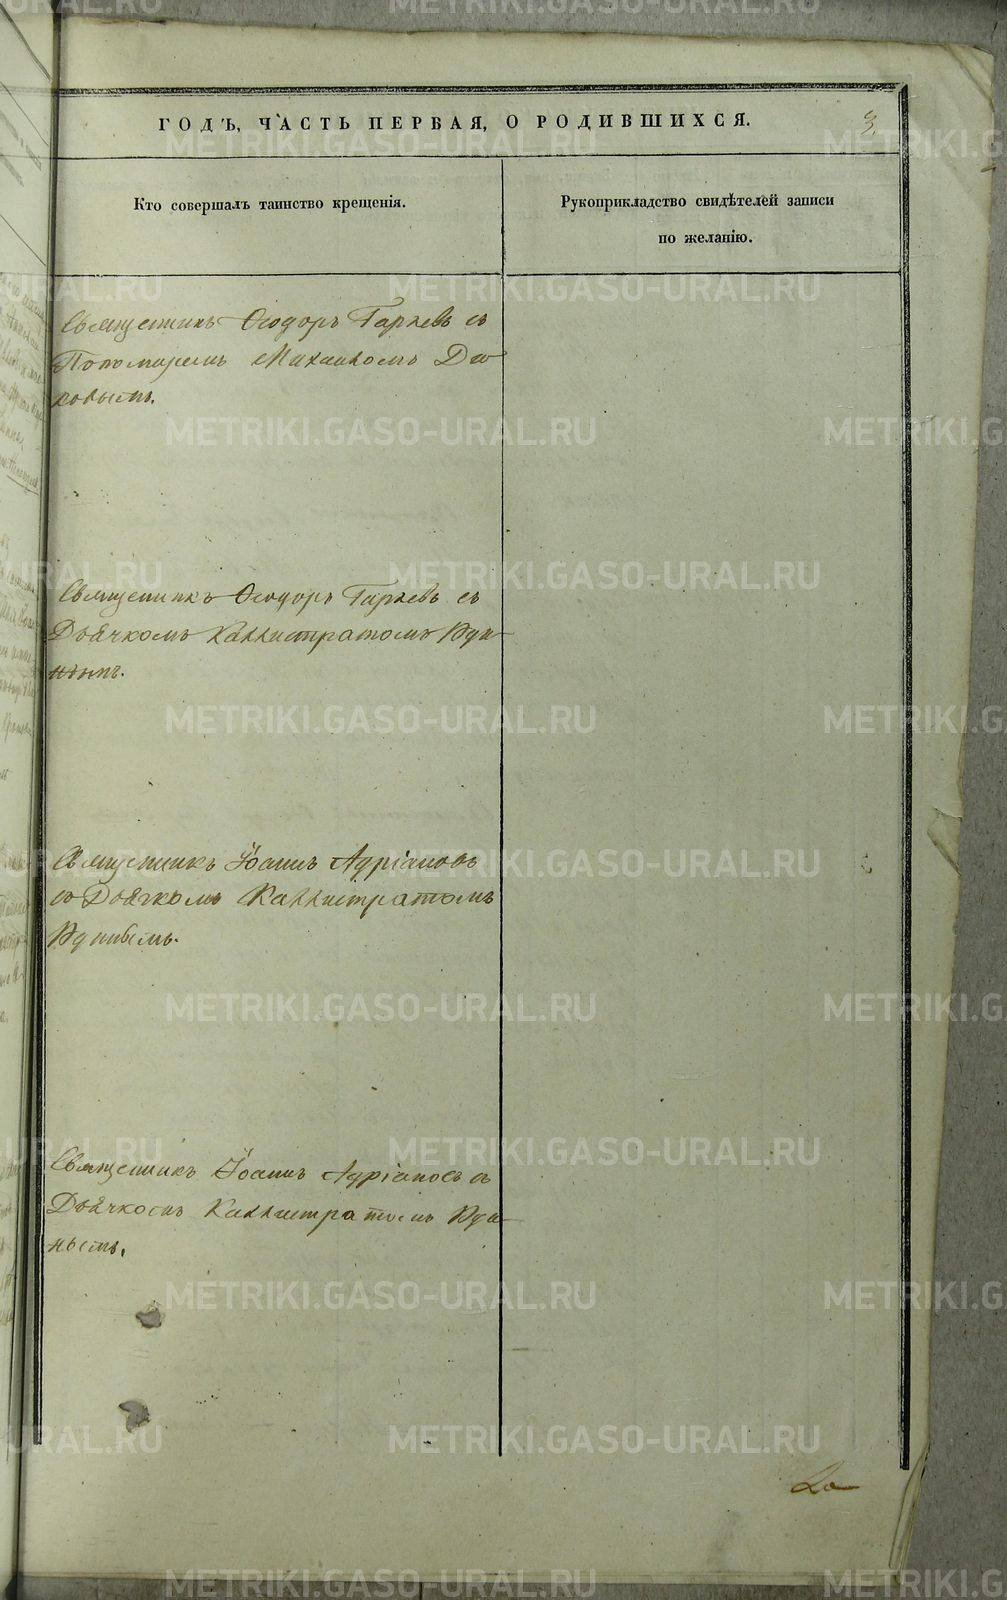 ГОДЪ, ЧАСТЬ ПЕРВАЯ, О РОДИВШИХСЯ.
3.
Кто совершалъ таинство крещенія.
Рукоприкладство свидѣтелей записи
по желанію.
Священникъ Ѳеодоръ Гаряевъ съ
Пономаремъ Михаиломъ
Священникъ Ѳеодоръ Гаряевъ съ
Дьячкомъ Каллистратомъ Юди-
нымъ.
Священникъ Іоаннъ Адріановъ
съ Дьячкомъ Каллистратомъ
Юдинымъ.
Священникъ Іоаннъ Адріановъ съ
Дьячкомъ Каллистратомъ Юди-
нымъ.
METRIKI.GASO-URAL.RU